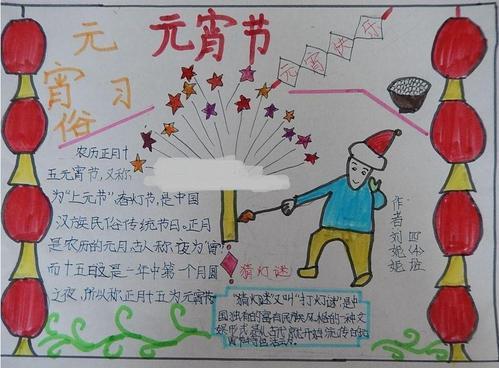 元宵节
元宵快乐
元宵习俗
农历正月十
五元宵节,又称
为"上元节"春灯节,是中国
汉族民俗传统节日。正月
是农历的元月,古人称夜为"宵"
而十五日又是一年中第一个月圆
之夜,所以称正月十五为元宵节
猜灯谜
"猜灯谜"又叫"打灯谜"是中
国独有的富有民族风格的一种文
娱形式
从古代就开始流传
四(4)班
作者刘妮妮